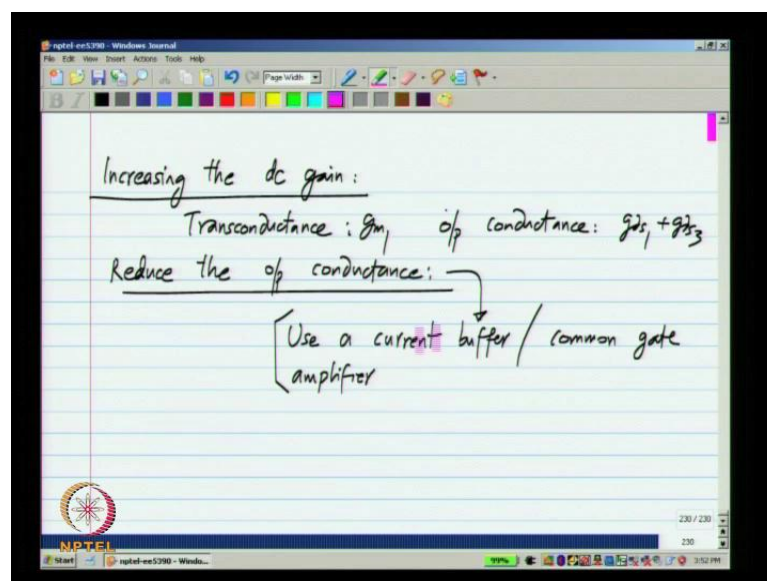 nptel-ee5390 - Windows Journal
File Edit View Insert Actions Tools Help
Page Width
B I
Increasing the dc gain :
Transconductance : gm1 o/p conductance: gds1 + gds3
Reduce the o/p conductance:
Use a current buffer / common gate
amplifier
230 / 230
230
NPTEL
Start
nptel-ee5390 - Windo...
99%
3:52 PM